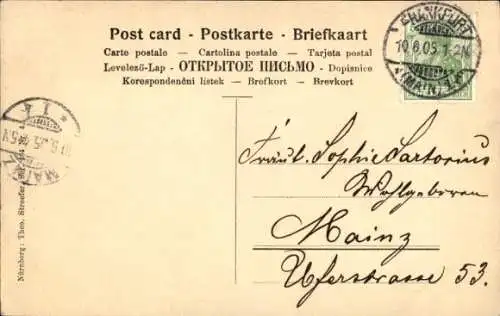 Post card - Postkarte - Briefkaart
Carte postale — Cartolina postale — Tarjeta postal
Levelező-Lap - ОТКРЫТОЕ ПИСЬМО - Dopisnice
Korespondenční listek — Brefkort — Brevkort
FRANKFURT
10.6.05.1-2N.
(MAIN)
MAINZ
Fräul. Sophie Sartorius
Wohlgeboren
Mainz
Uferstrasse 53.
Nürnberg: Theo. Stroefer